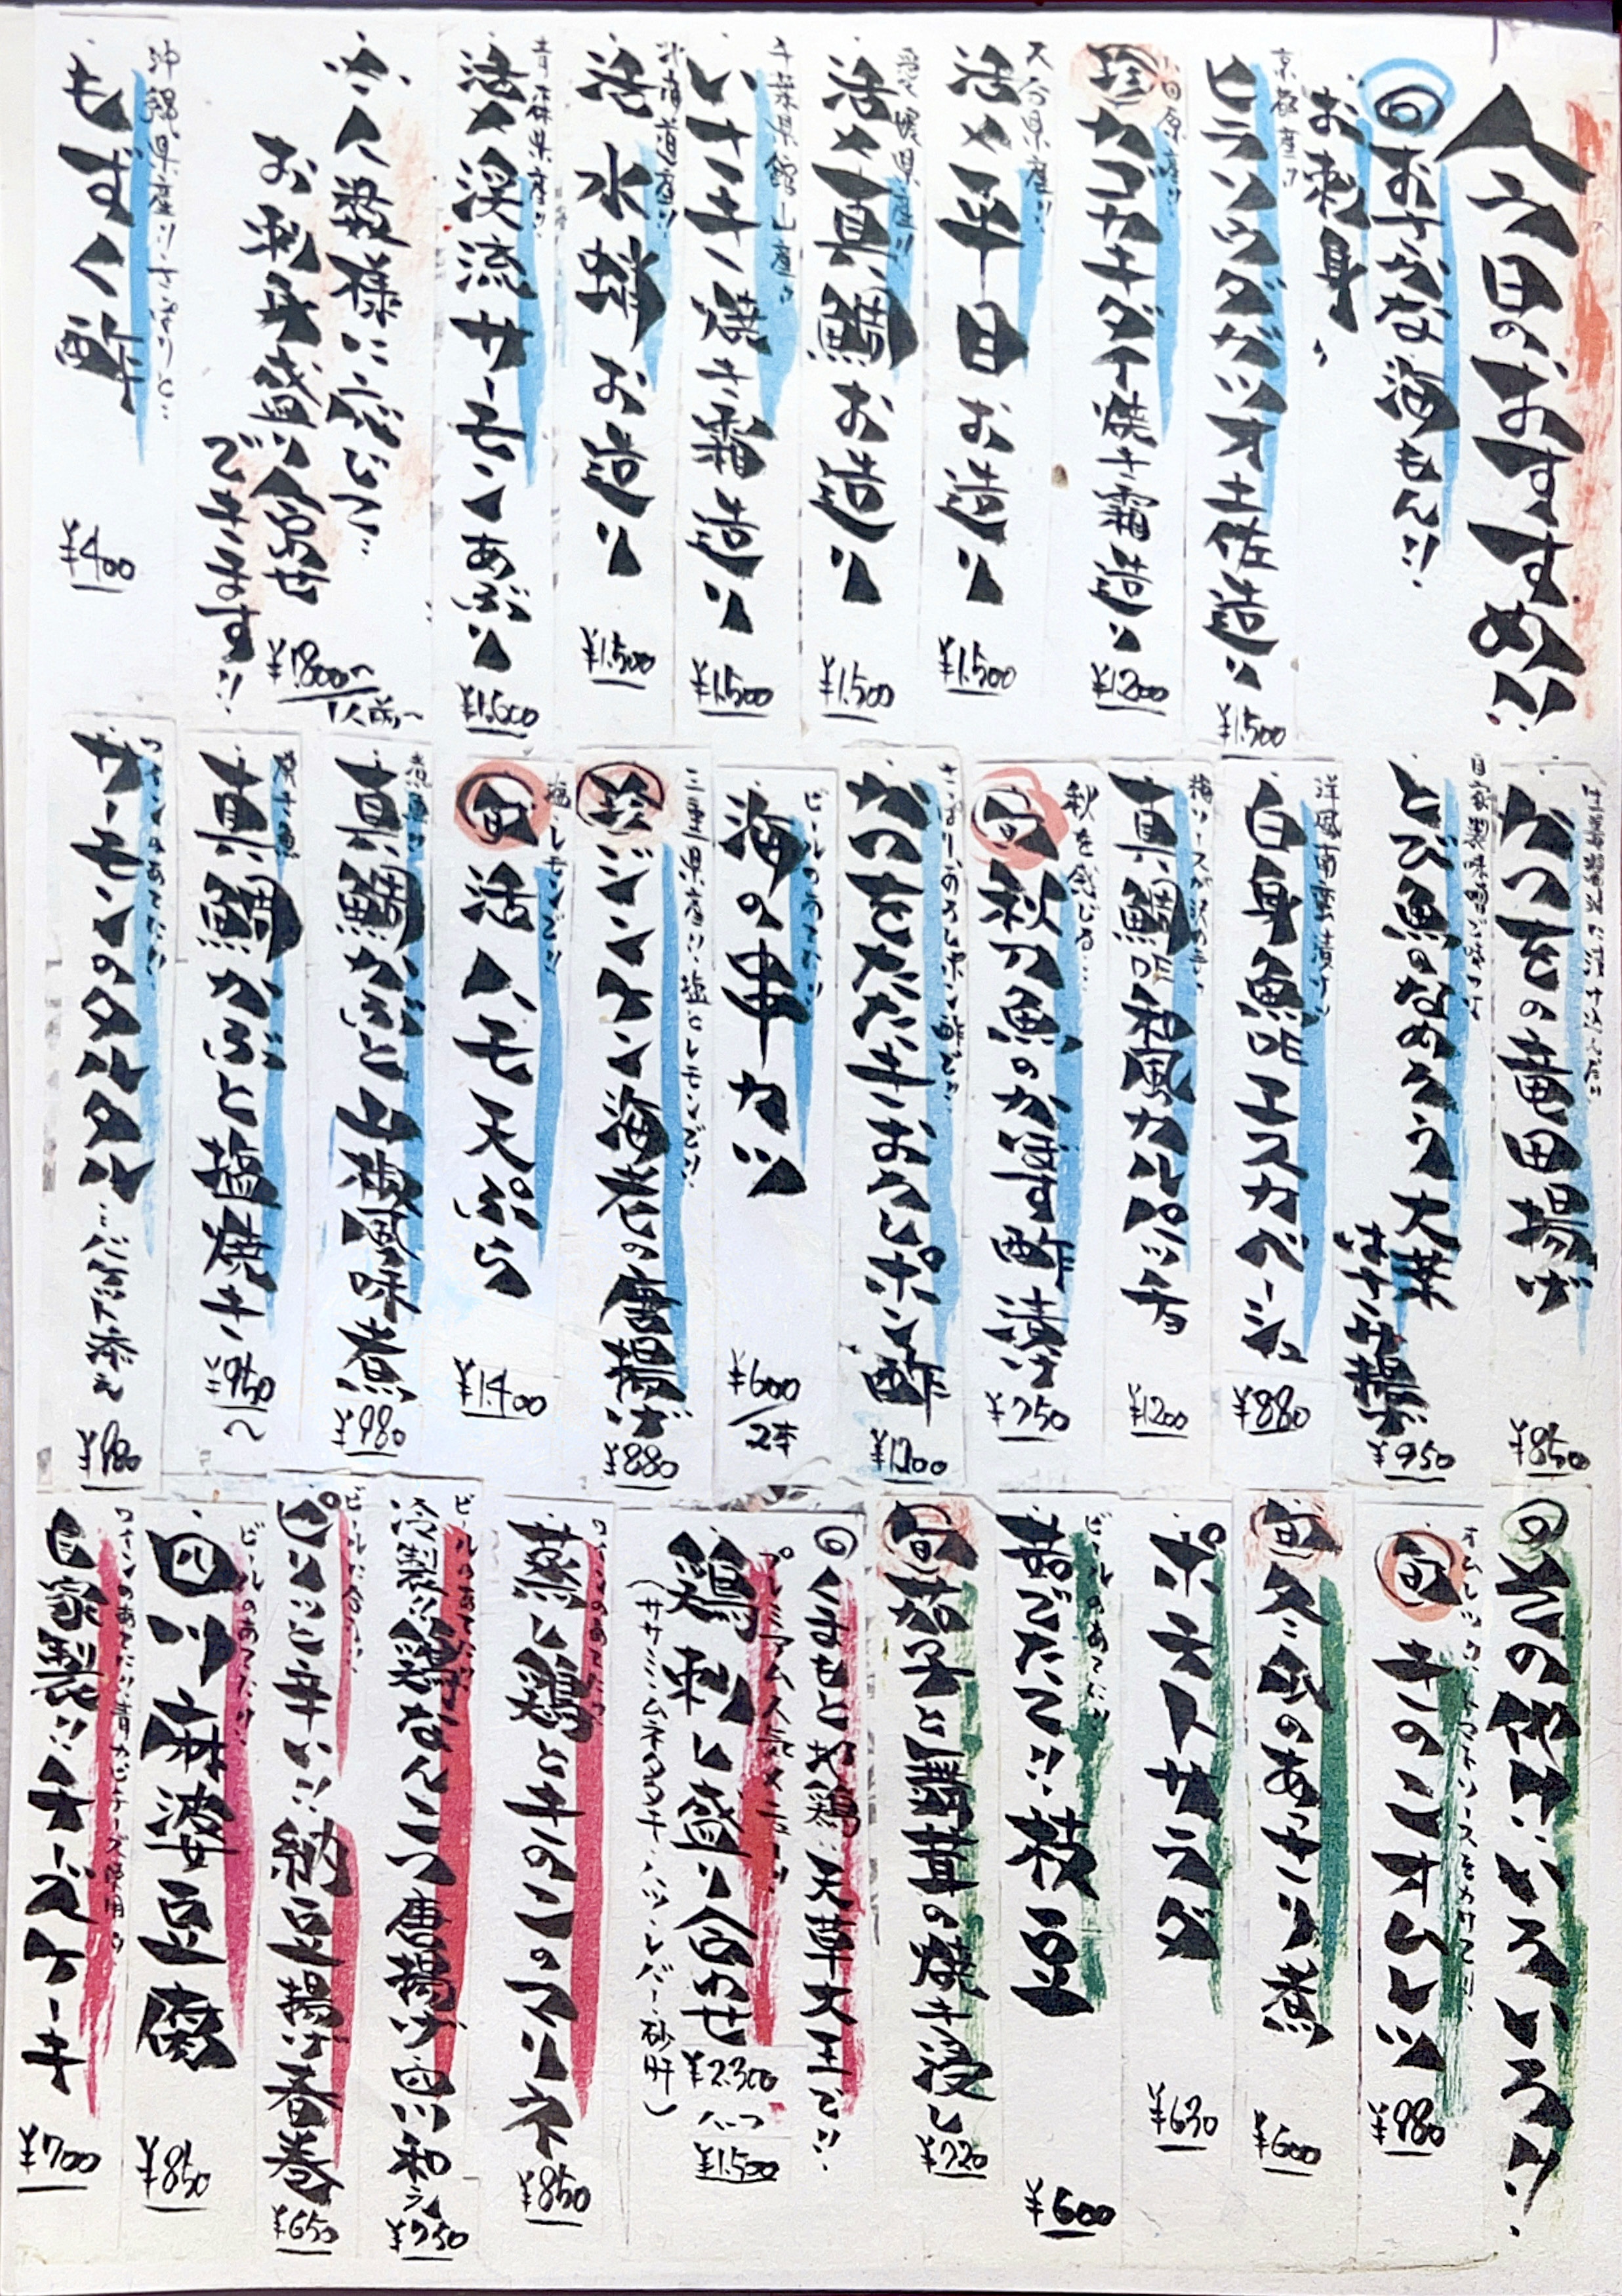 今日のおすすめ!!
◎おさかな海もん!!
お刺身
京都産!!
ヒラソウダガツオ土佐造り
¥1,500
小田原産!!
珍 タカノハダイ焼き霜造り
¥1,200
大分県産!!
活〆平目お造り
¥1,500
愛媛県産!!
活〆真鯛お造り
¥1,500
千葉県館山産!!
いサキ焼き霜造り
¥1,500
北海道産!!
活水蛸お造り
¥1,500
青森県産!!
活〆渓流サーモンあぶり
¥1,600
人数様に応じて…
お刺身盛り合せ
できます!!
¥1,800〜/1人前〜
沖縄県産!!さっぱりと…
もずく酢
¥400
かつをの竜田揚げ
¥850
自家製味噌で味つけ
とび魚のなめろう大葉
はさみ揚げ
¥950
洋風南蛮漬け!!
白身魚のエスカベーシュ
¥880
梅ソースが決め手!!
真鯛の和風カルパッチョ
¥1200
秋を感じる…
旬 秋刀魚のかぼす酢漬け
¥750
かつをたたきおろしポン酢
¥1,200
ビールのあてに!!
海の串カツ
¥600/2本
三重県産!!塩とレモンで!!
珍 ジンケン海老の唐揚げ
¥880
塩・レモンで!!
旬 活ハモ天ぷら
¥1,400
煮魚!!
真鯛かぶと山海風味煮
¥980
焼き魚
真鯛かぶと塩焼き
¥950〜
ワインのあてに!!
サーモンのタルタル…バゲット添え
¥980
◎その他いろいろ!!
旬 きのこオムレツ
¥980
旬 冬瓜のあっさり煮
¥600
ポテトサラダ
¥630
ビールのあてに!!
茹でたて!!枝豆
¥600
旬 茄子と舞茸の焼き浸し
¥720
◎くまもと地鶏:天草大王で!!
プレミアム人気メニュー!!
鶏刺し盛り合わせ
¥2,300
ハーフ
¥1,500
(ササミ・ムネタタキ・ハツ・レバー・砂肝)
ワインのあてに!!
蒸し鶏ときのこのマリネ
¥850
ビールのあてに!!
冷製!!鶏なんこつ唐揚げ四川和え
¥750
ビールに合う!!
ピリッと辛い!!納豆揚げ春巻
¥650
ビールのあてに!!
四川麻婆豆腐
¥850
ワインのあてに!!青カビチーズ使用!!
自家製!!チーズケーキ
¥700